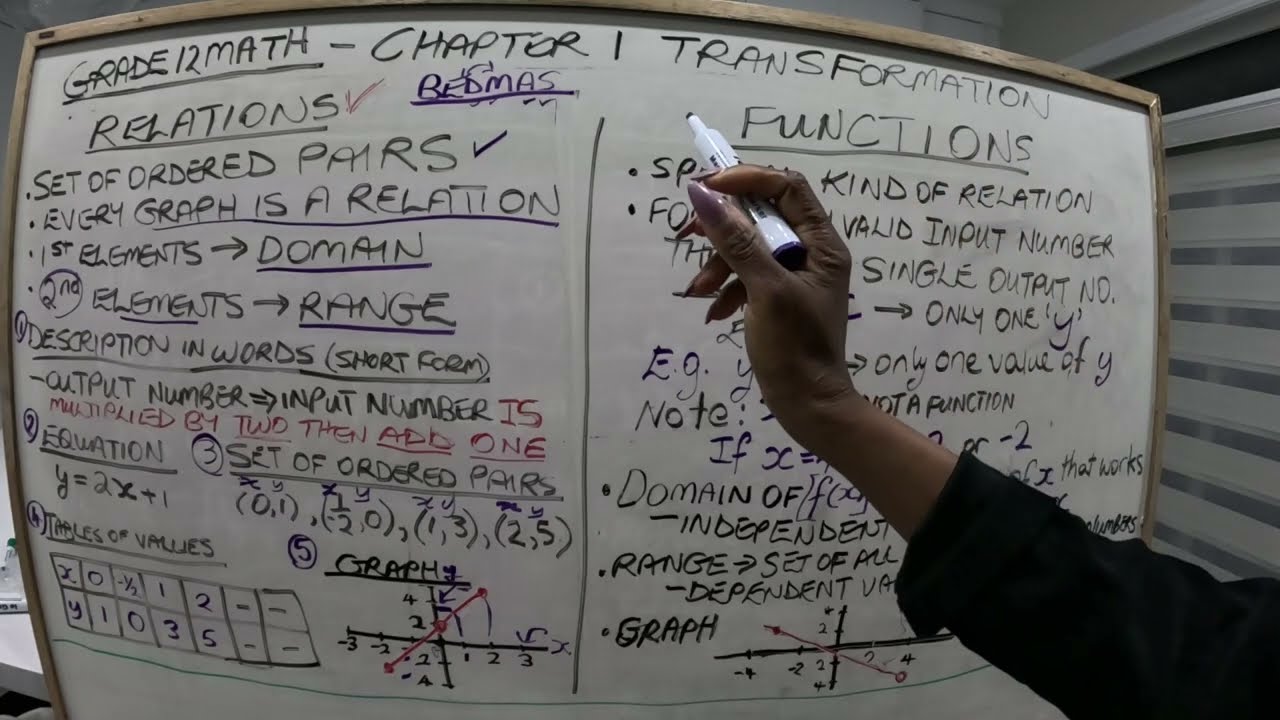 GRADE 12 MATH - CHAPTER 1 TRANSFORMATION
BEDMAS
RELATIONS ✓
• SET OF ORDERED PAIRS ✓
• EVERY GRAPH IS A RELATION
• 1ST ELEMENTS → DOMAIN
• 2nd ELEMENTS → RANGE
① DESCRIPTION IN WORDS (SHORT FORM)
- OUTPUT NUMBER ⇒ INPUT NUMBER IS
MULTIPLIED BY TWO THEN ADD ONE
② EQUATION
y = 2x + 1
③ SET OF ORDERED PAIRS
x y x y x y x y
(0,1), (-1/2, 0), (1, 3), (2, 5)
④ TABLES OF VALUES
x 0 -1/2 1 2 - -
y 1 0 3 5 - -
⑤ GRAPH
y
4
2
-3 -2 1 2 3 x
2
4
FUNCTIONS
• KIND OF RELATION
• VALID INPUT NUMBER
SINGLE OUTPUT NO.
→ ONLY ONE 'y'
E.g. y → only one value of y
Note: NOT A FUNCTION
If x = or -2
of x that works
• DOMAIN OF
- INDEPENDENT numbers
• RANGE ⇒ SET OF ALL
- DEPENDENT
• GRAPH
4
2
-4 -2 2 4
2
4